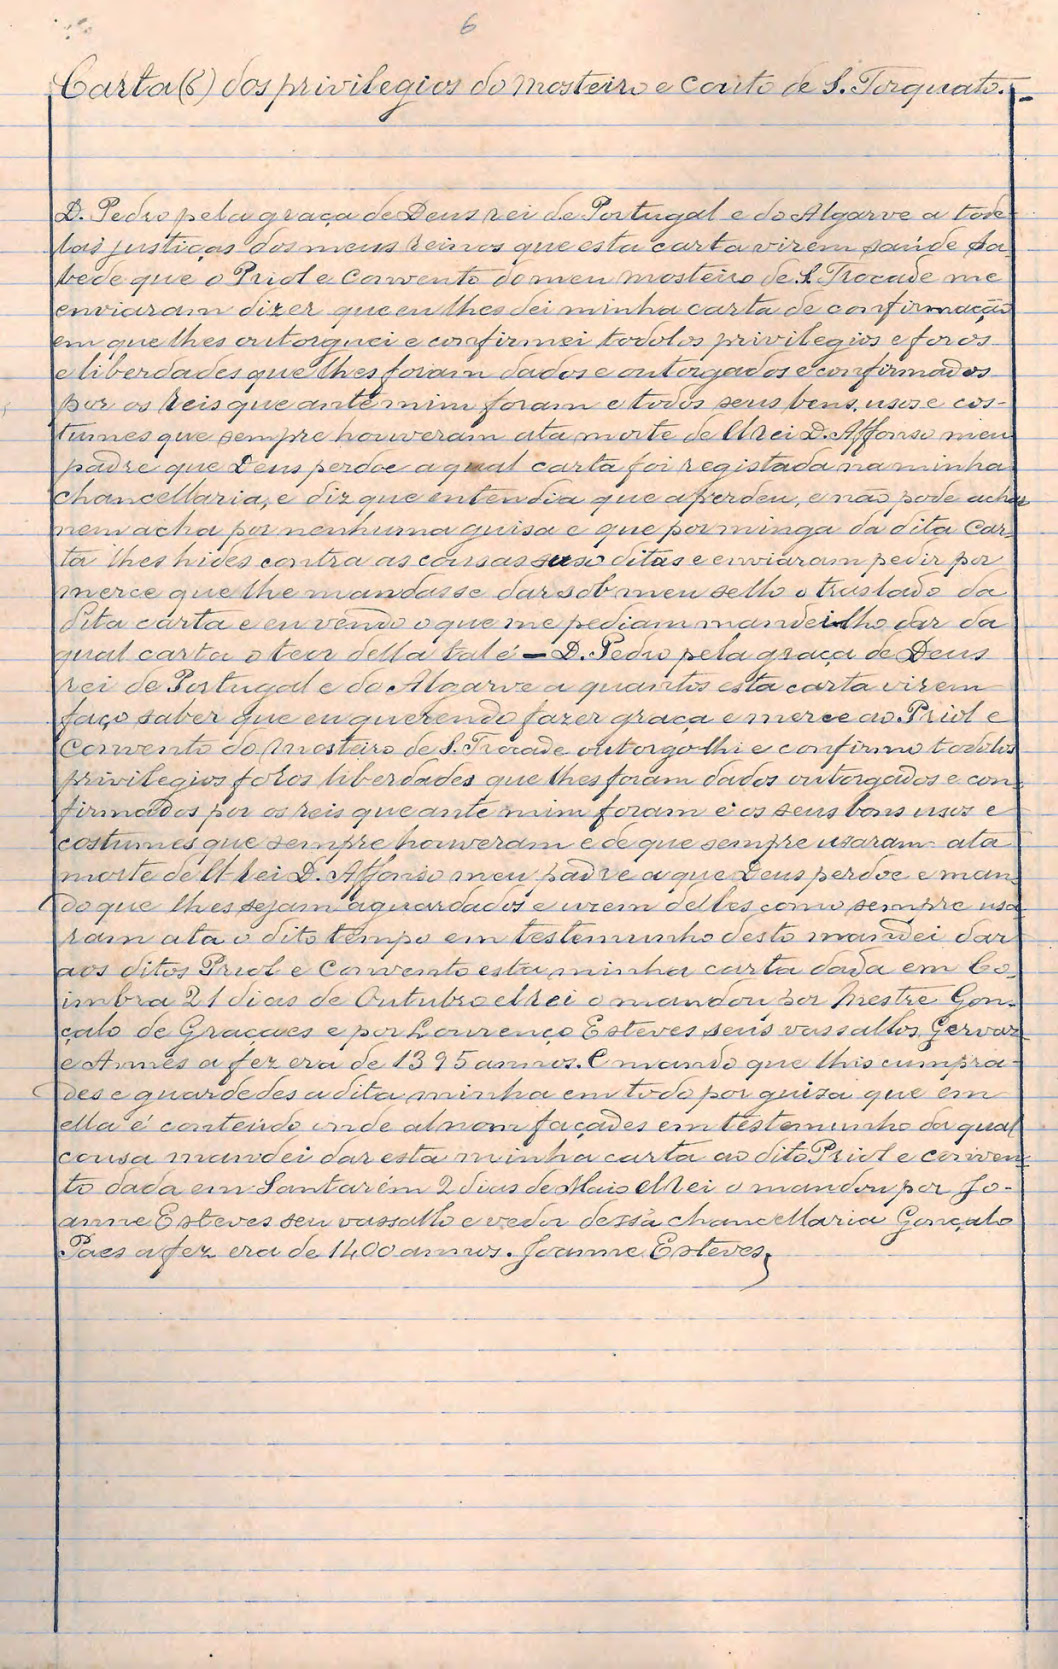 6
Carta(6) dos privilegios do mosteiro e couto de S. Torquato.
D. Pedro pela graça de Deus rei de Portugal e do Algarve a todo-
las justiças dos meus reinos que esta carta virem saúde sa-
bede que o Priol e Convento do meu mosteiro de S. Trocade me
enviaram dizer que eu lhes dei minha carta de confirmação
em que lhes outorguei e confirmei todolos privilegios e foros
e liberdades que lhes foram dados e outorgados e confirmados
por os reis que ante mim foram e todos seus bens, usos e cos-
tumes que sempre houveram ata morte de El rei D. Affonso meu
padre que Deus perdoe a qual carta foi registada na minha
chancellaria, e diz que entendia que a perdeu, e não pode achar
nem acha por nenhuma guisa e que por minga da dita car-
ta lhes hides contra as cousas suso ditas e enviaram pedir por
merce que lhe mandasse dar sob meu sello o traslado da
dita carta e eu vendo o que me pediam mandei lho dar da
qual carta o teor della tal é — D. Pedro pela graça de Deus
rei de Portugal e do Algarve a quantos esta carta virem
faço saber que eu querendo fazer graça e merce ao Priol e
Convento do Mosteiro de S. Trocade outorgo lhi e confirmo todolos
privilegios foros liberdades que lhes foram dados outorgados e con-
firmados por os reis que ante mim foram e os seus bons usos e
costumes que sempre houveram e de que sempre usaram ata
morte de El-rei D. Affonso meu padre a que Deus perdoe e man-
do que lhes sejam aguardados e usem delles como sempre usa
ram ata o dito tempo em testemunho desto mandei dar
aos ditos Priol e Convento esta minha carta dada em Co-
imbra 21 dias de Outubro el rei o mandou por Mestre Gon-
çalo de Graçaes e por Lourenço Esteves seus vassallos, Gervaz
e Annes a fez era de 1395 annos. E mando que lhis cumpra-
des e guardedes a dita minha em todo por guisa que em
ella é conteúdo unde al nom façades em testemunho da qual
cousa mandei dar esta minha carta ao dito Priol e conven-
to dada em Santarém 2 dias de Maio El rei o mandou por Jo-
anne Esteves seu vassallo e vedor dessa chancellaria Gonçalo
Paes a fez era de 1400 annos. Joanne Esteves,